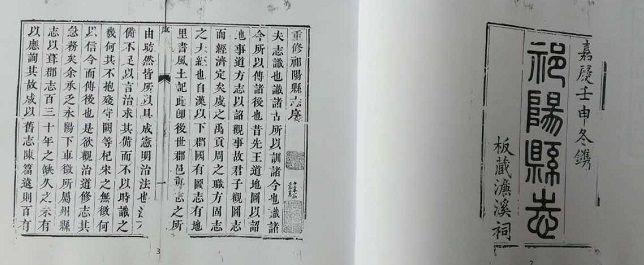 嘉慶壬申冬鐫
祁陽縣志
板藏濂溪祠
重修祁陽縣志序
夫志識也識諸古所以訓諸今也識諸
今所以傳諸後也昔先王道地圖以詔
地事道方志以詔觀事故君子觀圖志
而經濟定矣虞之禹貢周之職方固志
之大經也自漢以下郡國有圖志有地
里書風土記此卽後世郡邑志之所
由昉然皆所以具成憲明治法也
備不足以言治求其備而不以時識之
幾何其不抱殘守闕等杞宋之無徵何
以信今而傳後也是欲觀治道修志其
急務矣余承乏永陽下車徵所屬州縣
志以葺郡志百三十年之缺久之未有
以應詢其故咸以舊志陳遠則百有